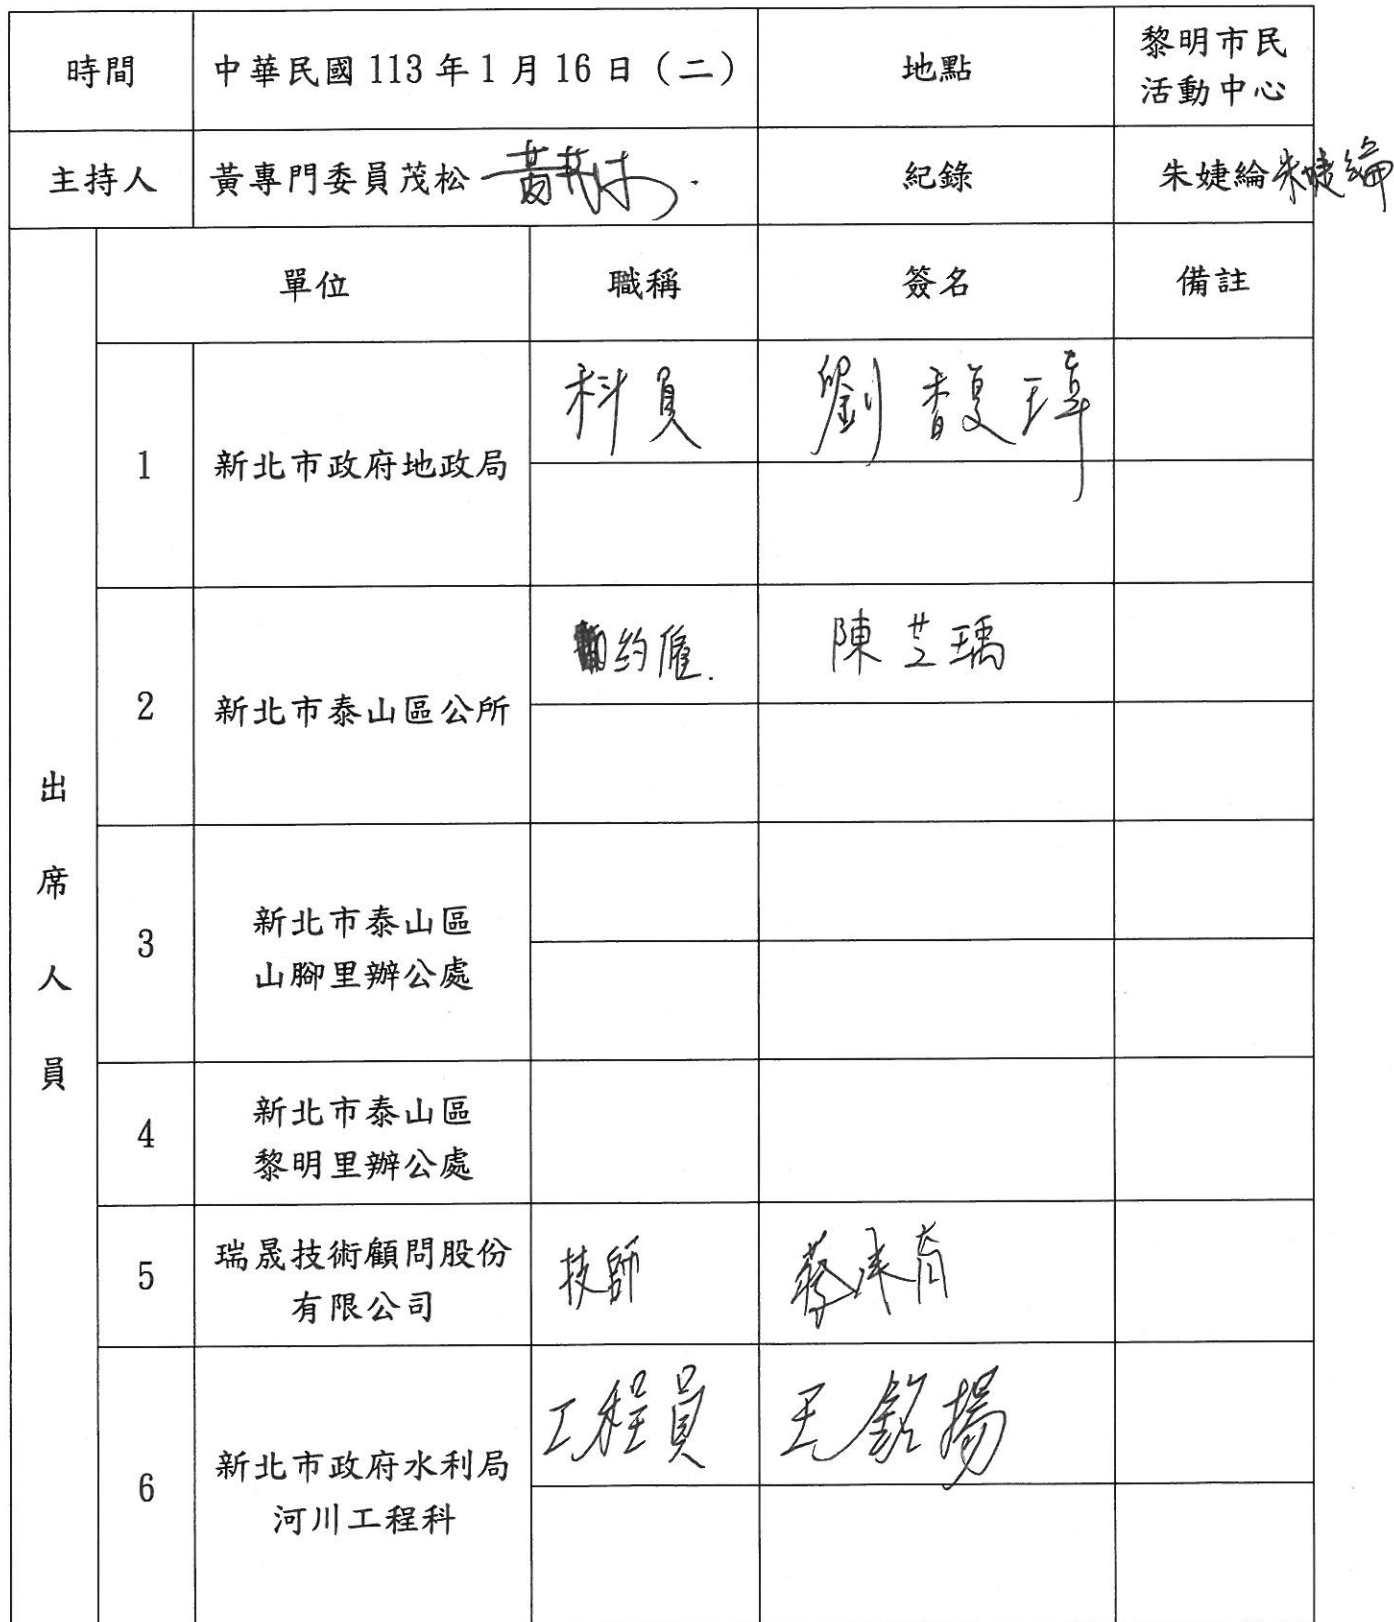 時間 中華民國 113 年 1 月 16 日（二） 地點 黎明市民
活動中心
主持人 黃專門委員茂松 黃茂松 紀錄 朱婕綸 朱婕綸
出席人員
單位 職稱 簽名 備註
1 新北市政府地政局 科員 劉馥瑋
2 新北市泰山區公所 約僱. 陳芝瑀
3 新北市泰山區
山腳里辦公處
4 新北市泰山區
黎明里辦公處
5 瑞晟技術顧問股份
有限公司 技師
6 新北市政府水利局
河川工程科 工程員 王銘揚